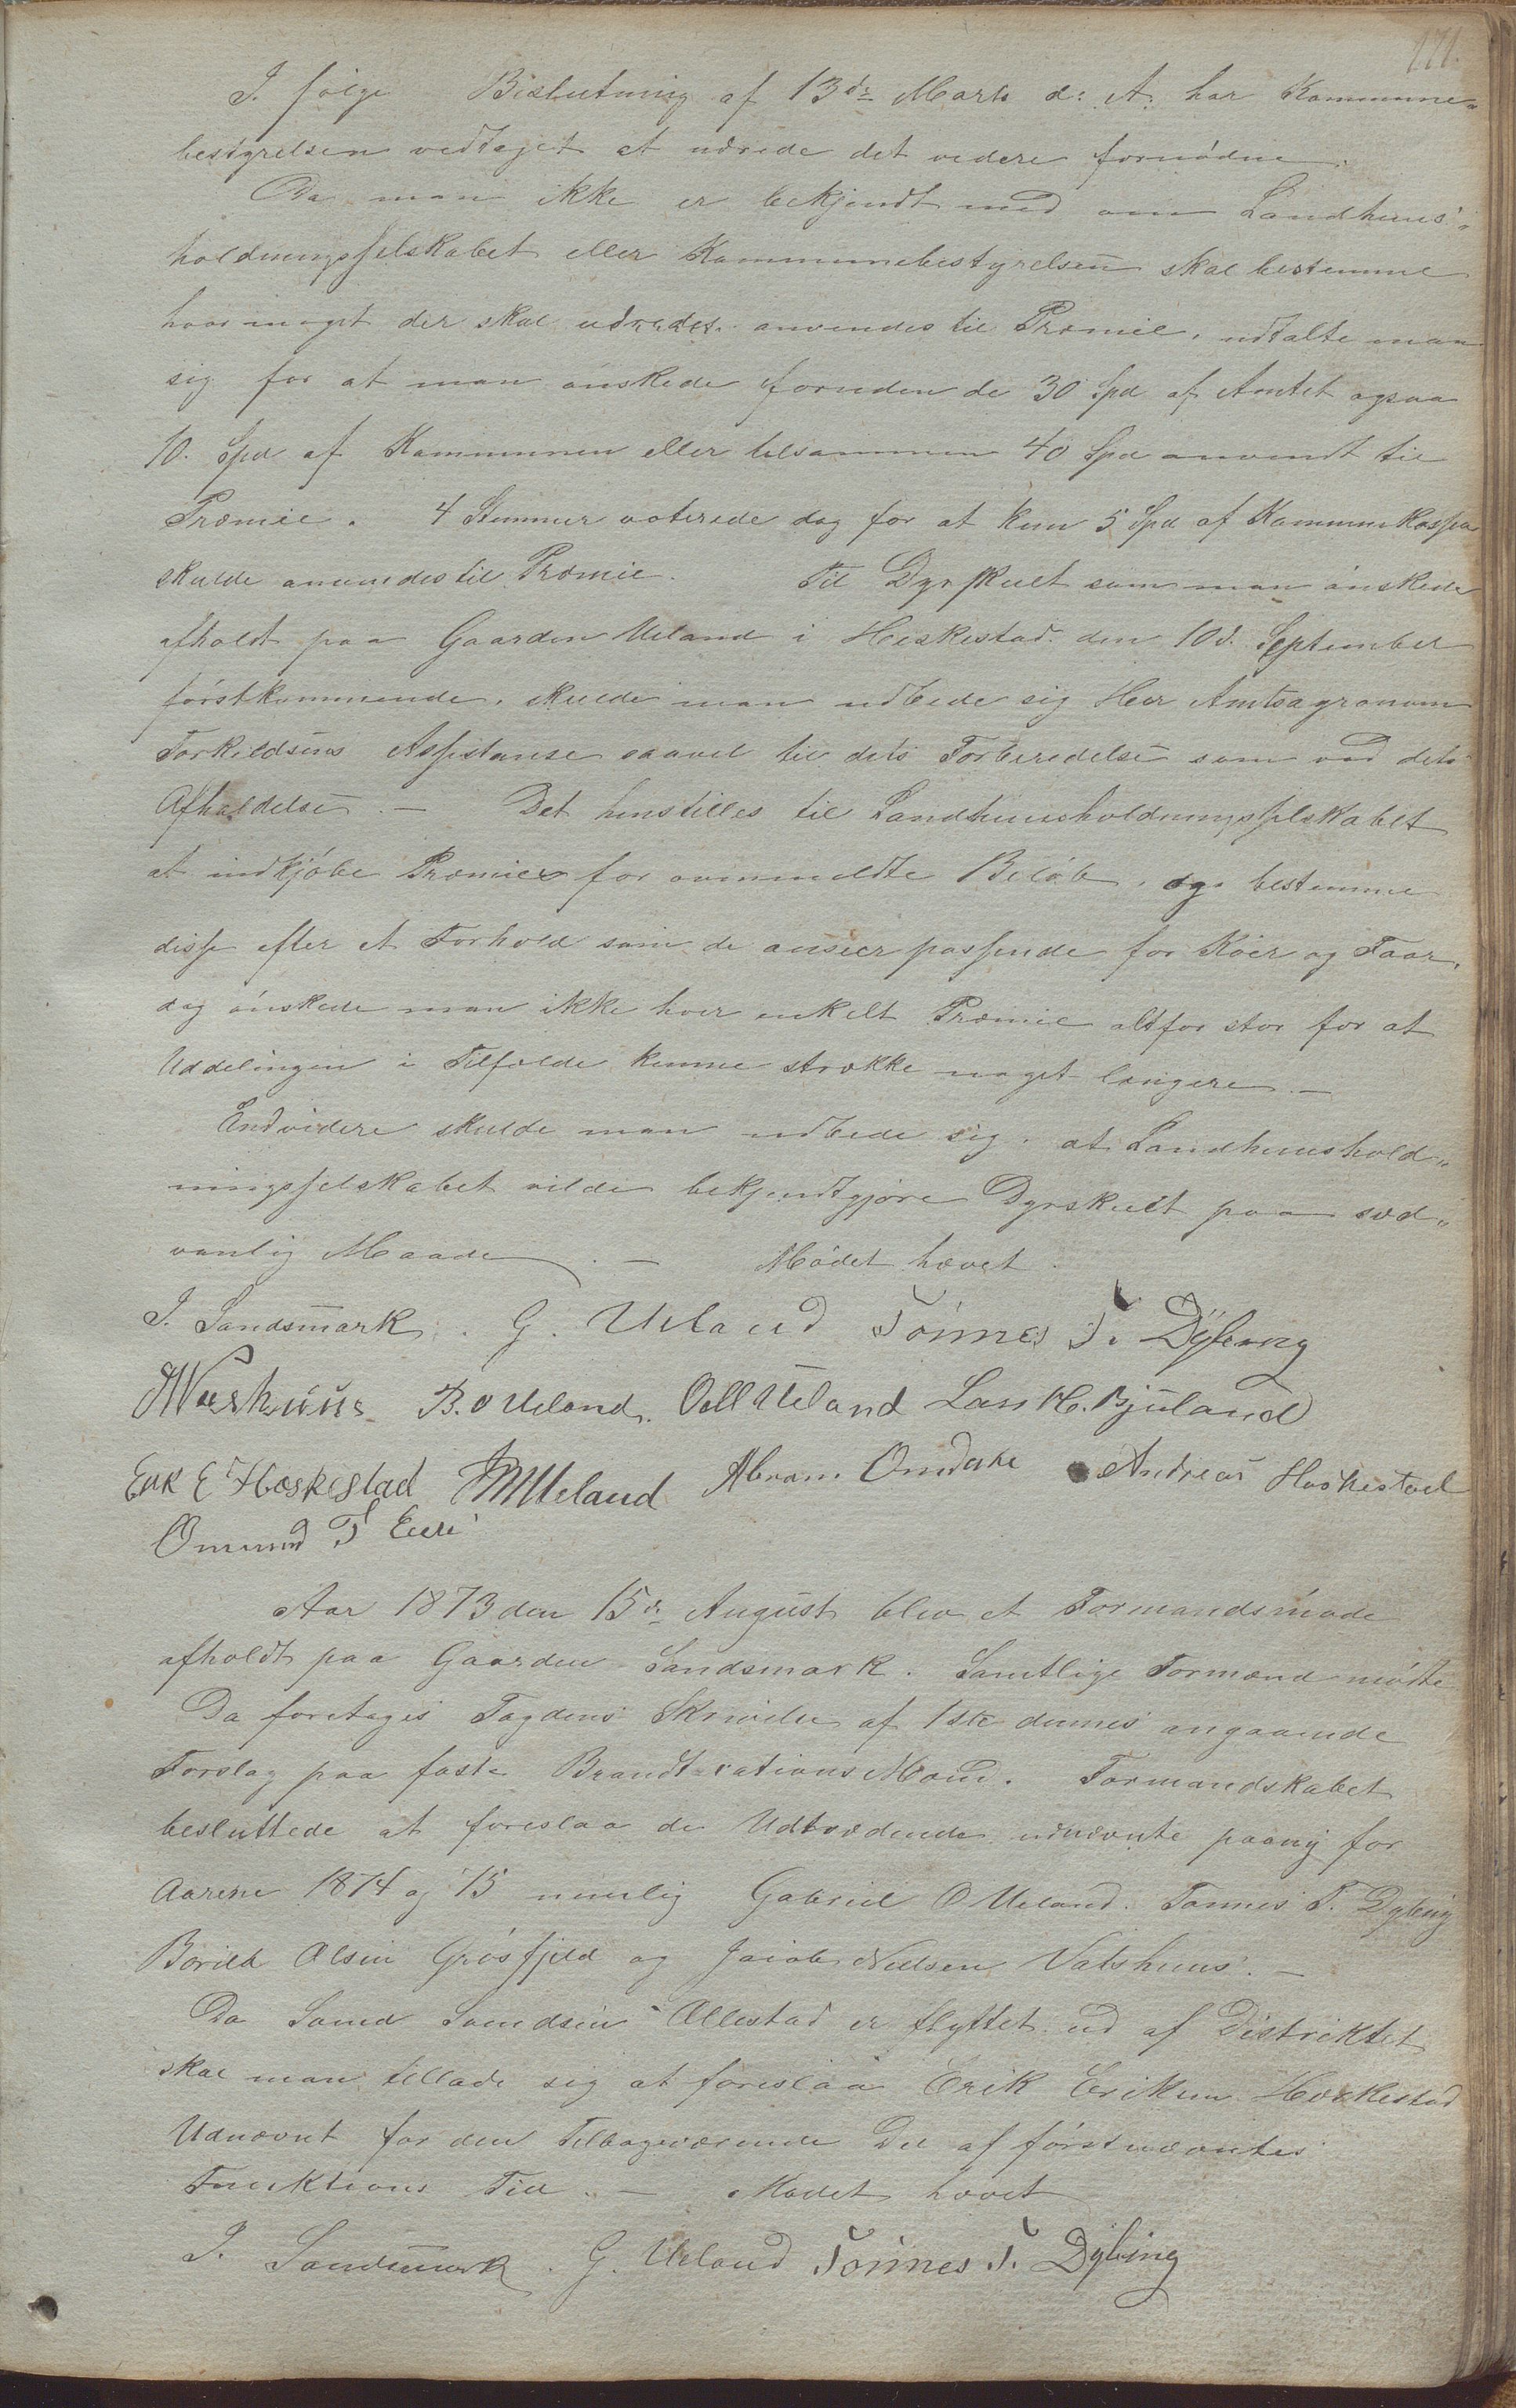 171.
I følge Beslutning af 13de Marts d: A: har Kommune-
bestyrelsen vedtaget at udrede det videre fornødne.
Da man ikke er bekjendt med om Landhuus-
holdningsselskabet eller Kommunebestyrelsen skal bestemme
hvor meget der skal udredes anvendes til Præmie, udtalte man
sig for at man ønskede foruden de 30 Spd af Amtet ogsaa
10. Spd af Kommunen eller tilsammen 40 Spd anvendt til
Præmie. 4 Stemmer voterede dog for at kun 5 Spd af Kommunekassen
skulde anvendes til Præmie. Til Dyrskuet som man ønskede
afholdt paa Gaarden Ueland i Heskestad den 10d. September
førstkommende, skulde man udbede sig Herr Amtsagronom
Torkildsens Assistanse saavel til dets Forberedelse som ved dets
Afholdelse. — Det henstilles til Landhuusholdningsselskabet
at indkjøbe Præmier for ovenmeldte Beløb, og bestemme
disse efter et Forhold som de anseer passende for Køer og Faar,
dog ønskede man ikke hver enkelt Præmie altfor stor for at
Uddelingen i Tilfælde kunne strække noget længere. —
Endvidere skulde man udbede sig, at Landhuushold-
ningsselskabet vilde bekjendtgjøre Dyrskuet paa sæd-
vanlig Maade. — Mødet hævet.
I. Sandsmark. G. Ueland Tønnes T. Dybing
B. O Ueland. Oll Ueland Lars H. Bjuland
Erik E Heskestad Ueland Abram Omdahl Andreas Heskestad
Ommund T Eeri
Aar 1873 den 15de August blev et Formandsmøde
afholdt paa Gaarden Sandsmark. Samtlige Formænd mødte
Da foretages Fogdens Skrivelse af 1ste dennes angaaende
Forslag paa faste Brandtaxations Mænd. Formandskabet
besluttede at foreslaa de Udtrædende udnævnte paany for
Aarene 1874 og 75 nemlig Gabriel O Ueland. Tønnes T. Dybing
Boreld Olsen Grøsfjeld og Jacob Nielsen Vatshuus. —
Da Samd Samdsen Ollestad er flyttet ud af Distriktet
skal man tillade sig at foreslaa Erik Eriksen Heskestad
Udnævnt for den Tilbageværende Del af førstnævntes
Funktions Tid. — Mødet hævet
I. Sandsmark. G. Ueland Tønnes T. Dybing